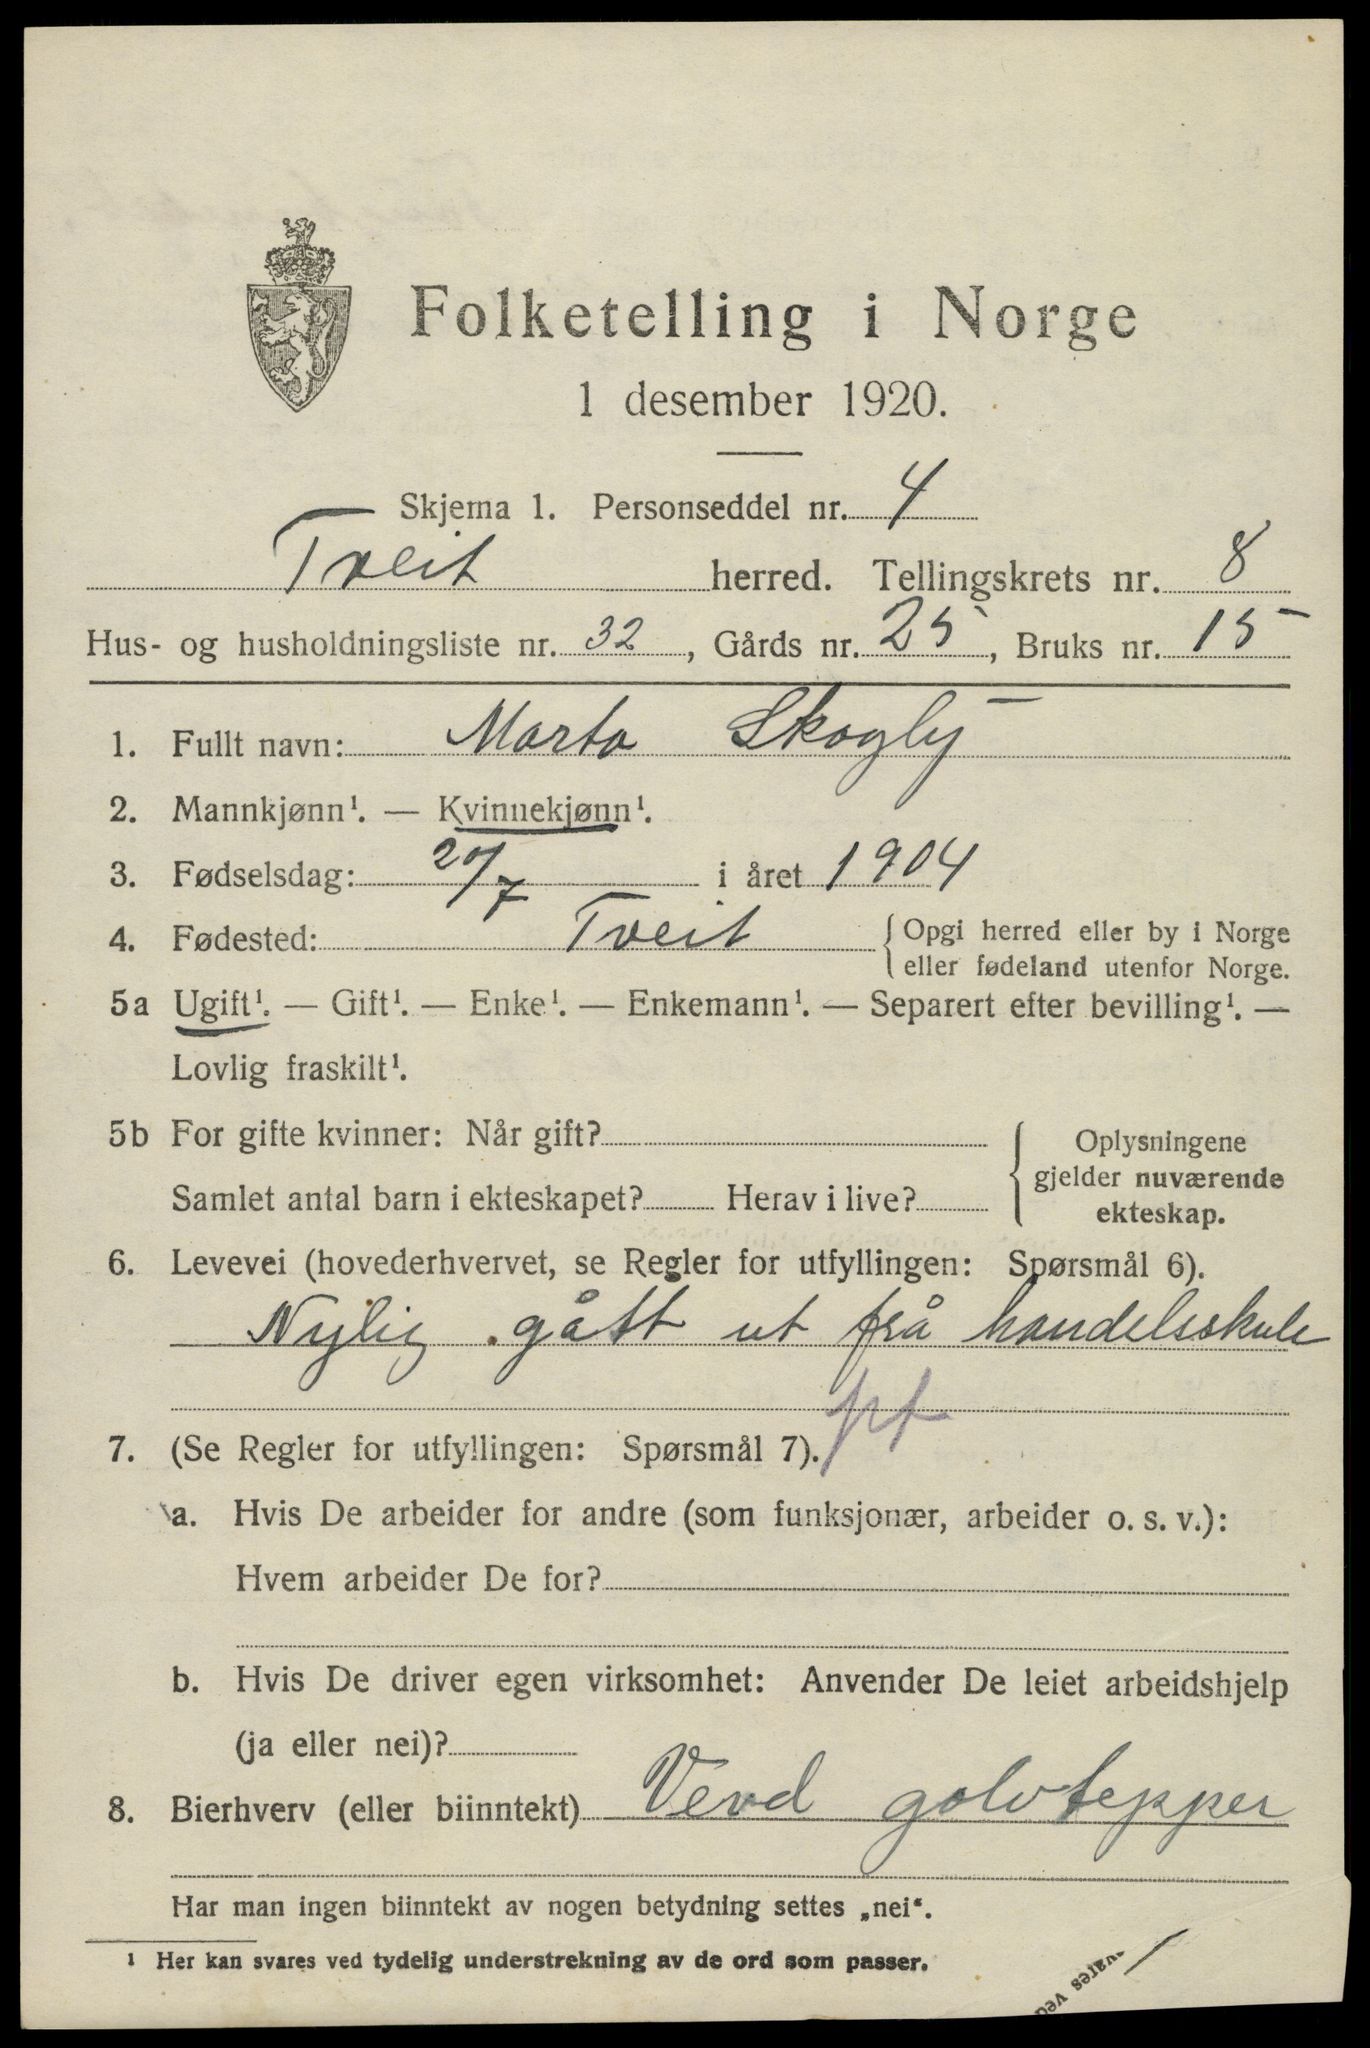 Folketelling i Norge
1 desember 1920.
Skjema 1. Personseddel nr. 4
Tveit herred. Tellingskrets nr. 8
Hus- og husholdningsliste nr. 32, Gårds nr. 25, Bruks nr. 15
1. Fullt navn: Marta Skogly
2. Mannkjønn¹. — Kvinnekjønn¹.
3. Fødselsdag: 20/7 i året 1904
4. Fødested: Tveit { Opgi herred eller by i Norge
eller fødeland utenfor Norge.
5a Ugift¹. — Gift¹. — Enke¹. — Enkemann¹. — Separert efter bevilling¹. —
Lovlig fraskilt¹.
5b For gifte kvinner: Når gift?
Samlet antal barn i ekteskapet? Herav i live?
{ Oplysningene
gjelder nuværende
ekteskap.
6. Levevei (hovederhvervet, se Regler for utfyllingen: Spørsmål 6).
Nylig gått ut frå handelsskule
7. (Se Regler for utfyllingen: Spørsmål 7).
a. Hvis De arbeider for andre (som funksjonær, arbeider o. s. v.):
Hvem arbeider De for?
b. Hvis De driver egen virksomhet: Anvender De leiet arbeidshjelp
(ja eller nei)?
8. Bierhverv (eller biinntekt) Vevd golvtepper
Har man ingen biinntekt av nogen betydning settes „nei“.
¹ Her kan svares ved tydelig understrekning av de ord som passer.
svares ved